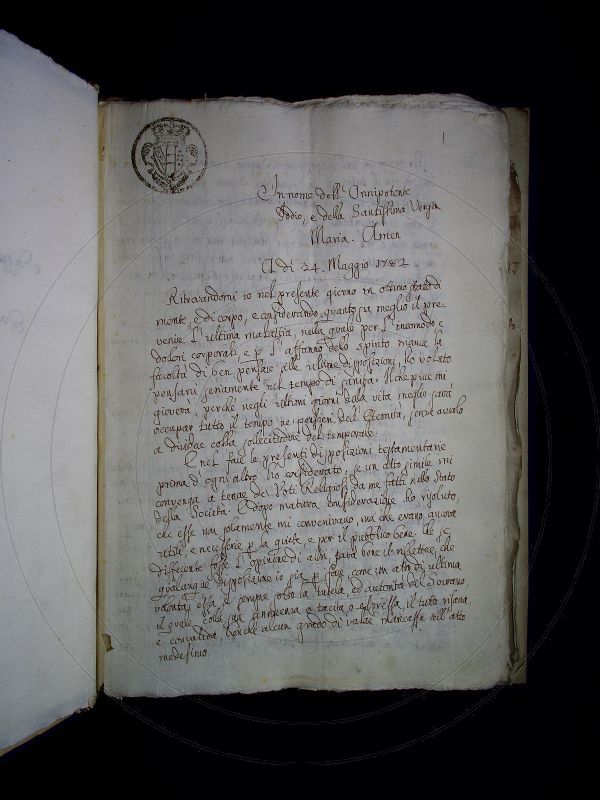 In nome dell' Onnipotente
Iddio, e della Santissima Vergin
Maria. Amen
Adi 24. Maggio 1782
Ritrovandomi io nel presente giorno in ottimo stato di
mente, e di corpo, e considerando quanto sia meglio il pre-
venire l'ultima malattia, nella quale per l'incomodo e
dolori corporali, e p l'affanno dello spirito manca la
facoltà di ben pensare alle ultime disposizioni, ho voluto
pensarvi seriamente nel tempo di sanità. Il che più mi
gioverà, perché negli ultimi giorni della vita meglio sarà
occupar tutto il tempo ne' pensieri dell' Eternità, senza averlo
a dividere colla sollecitudine del temporale.
E nel fare le presenti disposizioni testamentarie
prima d'ogni altro ho considerato, se un atto simile mi
convenga a tenore dei Voti Religiosi da me fatti nello stato
della Società. E dopo matura considerazione ho risoluto,
che esse non solamente mi convenivano, ma che erano ancora
utili, e necessarie p la quiete, e per il pubblico bene. Che se
differente fosse l'opinione di altri, sarà bene il riflettere, che
qualunque disposizione io sia p fare, come un atto di ultima
volontà, essa è sempre sotto la tutela, ed autorità del Sovrano,
il quale colla sua annuenza e tacita o espressa il tutto risana,
e convalida, benché alcun grado di valore mancasse nell' atto
medesimo.